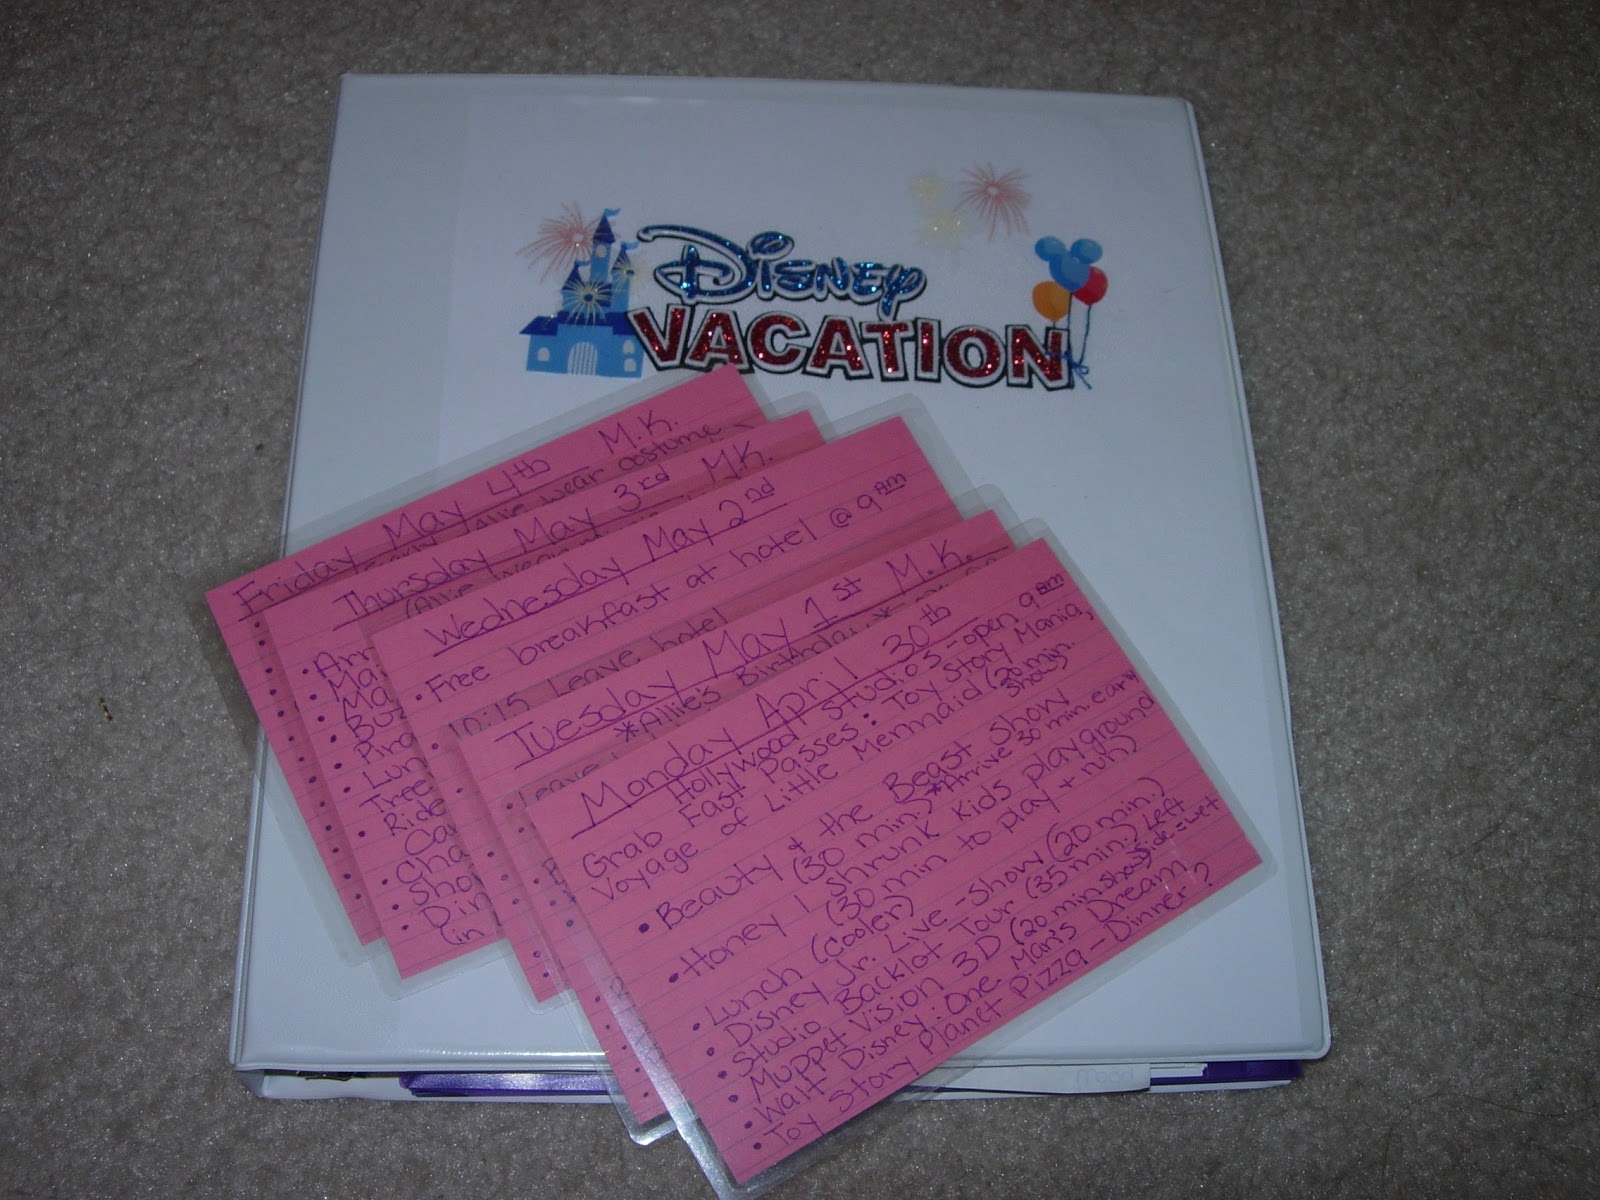 Disney
VACATION
Friday May 4th M.K.
Allie wear costume
Thursday May 3rd M.K.
(Allie wear
• Arr
• Ma
• Ma
• Bu
• Pira
• Lun
Tree
• Ride
Ca
• Cha
• Sho
• Din
(in
Wednesday May 2nd
• Free breakfast at hotel @ 9AM
• 10:15 Leave hotel
Tuesday May 1st M.K.
*Allie's Birthday*
• Leave
Monday April 30th
Hollywood Studios-open 9AM
Grab Fast Passes: Toy Story Mania,
Voyage of Little Mermaid (20 min. show)
• Beauty & the Beast Show
(30 min.) *Arrive 30 min. early
• Honey I Shrunk Kids playground
(30 min to play + run)
• Lunch (cooler)
• Disney Jr. Live-Show (20 min.)
• Studio Backlot Tour (35 min.) Left side=wet
• Muppet Vision 3D (20 min show)
• Walt Disney: One Man's Dream
• Toy Story Planet Pizza - Dinner?